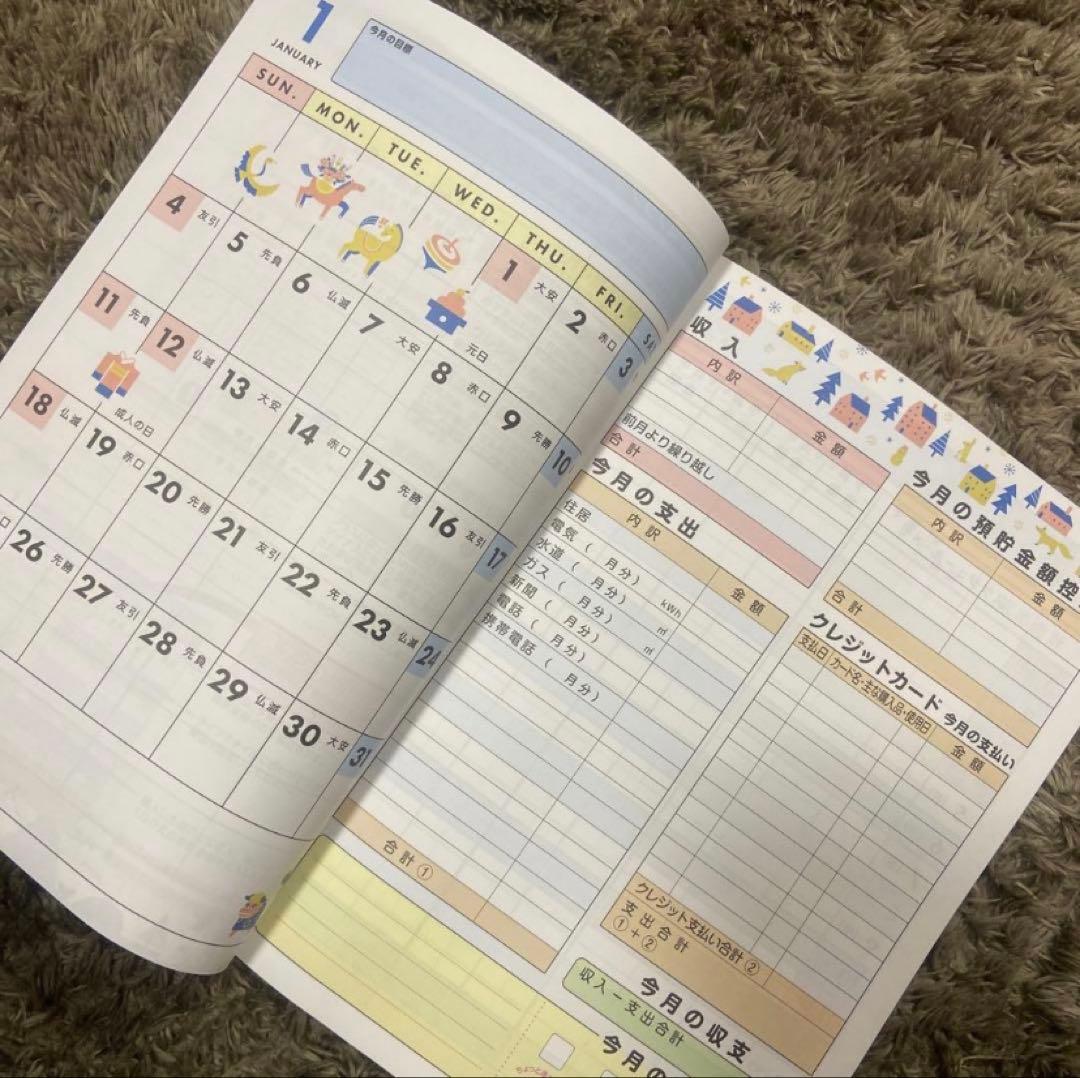 1
JANUARY
今月の目標
SUN. MON. TUE. WED. THU. FRI.
1 大安 元日
2 赤口
3
4 友引
5 先負
6 仏滅
7 大安
8 赤口
9 先勝
10
11 先負
12 仏滅 成人の日
13 大安
14 赤口
15 先勝
16 友引
17
18 仏滅
19 赤口
20 先勝
21 友引
22 先負
23 仏滅
24
口
26 先勝
27 友引
28 先負
29 仏滅
30 大安
31
収入
内訳 金額
前月より繰り越し
合計
今月の支出
内訳 金額
住居
電気( 月分) kWh
水道( 月分) ㎥
ガス( 月分) ㎥
新聞( 月分)
電話( 月分)
携帯電話( 月分)
合計①
今月の預貯金額控
内訳 金額
合計
クレジットカード 今月の支払い
支払日 カード名・主な購入品・使用日 金額
クレジット支払い合計②
支出合計
①+②
今月の収支
収入-支出合計
今月の